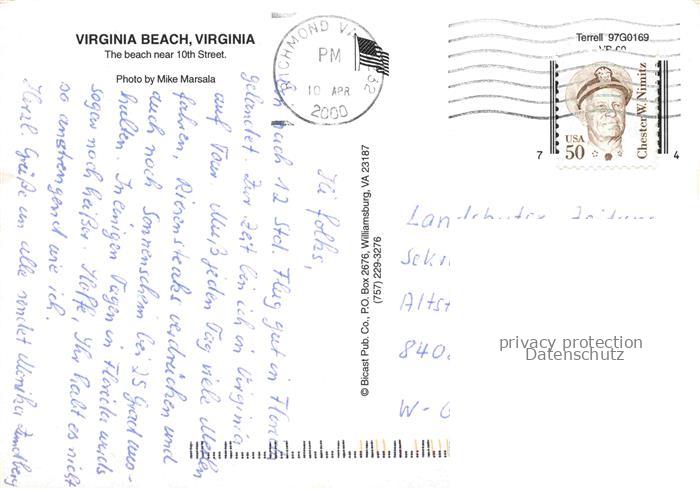 VIRGINIA BEACH, VIRGINIA
The beach near 10th Street.
Photo by Mike Marsala
RICHMOND VA 232
PM
10 APR
2000
Terrell 97G0169
USA
50
Chester W. Nimitz
7 4
Hi folks,
bin nach 12 Std. Flug gut in Florida
gelandet. Zur Zeit bin ich in Virginia
auf Tour. Muß jeden Tag viele Meilen
fahren, Riesensteaks verdrücken und
auch noch Sonnenschein bei 25 Grad aus-
halten. In einigen Tagen in Florida wirds
sogar noch heißer. Hoffe, Ihr habt es nicht
so anstrengend wie ich.
Herzl. Grüße an alle sendet Monika
© Bicast Pub. Co., P.O. Box 2676, Williamsburg, VA 23187
(757) 229-3276
Landshuter Zeitung
Sek
Altst
840
W-
privacy protection
Datenschutz